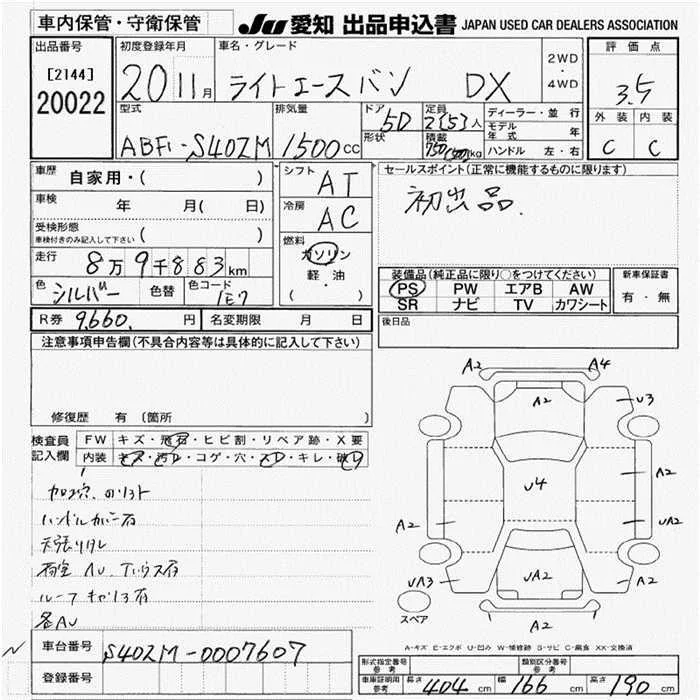 車内保管・守衛保管
JU 愛知 出品申込書 JAPAN USED CAR DEALERS ASSOCIATION
出品番号
[2144]
20022
初度登録年月
20 11月
車名・グレード
ライトエースバン DX
2WD
・
4WD
評価点
3.5
外装 内装
C C
型式
ABF-S402M
排気量
1500cc
ドア
5D
形状
定員
2(5)人
積載
750(500)kg
ディーラー・並行
モデル年式 年
ハンドル 左・右
車歴 自家用・( )
車検 年 月( 日)
受検形態
車検付きのみ記入して下さい ( )
走行 8万9千883km
色 シルバー 色替 色コード 1E7
シフト AT
冷房 AC
燃料
ガソリン
軽・油
( )
セールスポイント(正常に機能するものに限ります)
初出品.
装備品(純正品に限り○をつけてください)
PS PW エアB AW
SR ナビ TV カワシート
新車保証書
有・無
R券 9,660. 円 名変期限 月 日
後日品
注意事項申告欄(不具合内容等は具体的に記入して下さい)
修復歴 有(箇所 )
検査員記入欄
FW キズ・飛石・ヒビ割・リペア跡・X要
内装 キズ・汚れ・コゲ・穴・スレ・キレ・破レ
ハンドルカバー有
天張リヨレ
ルーフキャリア有
各AU
A2 A4
A2
U3
U4
A2
A2
UA2
UA2
UA3
A2
A2
スペア
A-キズ E-エクボ U-凹み W-補修跡 S-サビ C-腐食 XX-交換済
車台番号 S402M-0007607
登録番号
形式指定番号 参考
類別区分番号 参考
車庫証明用 参考 長さ 404cm 幅 166cm 高さ 190cm